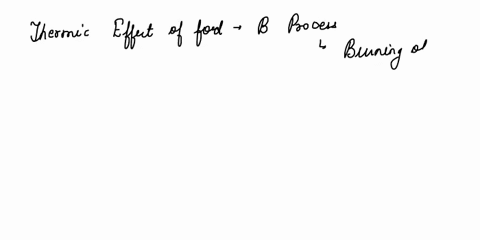 Thermic Effect of food → B Process
↳ Burning of